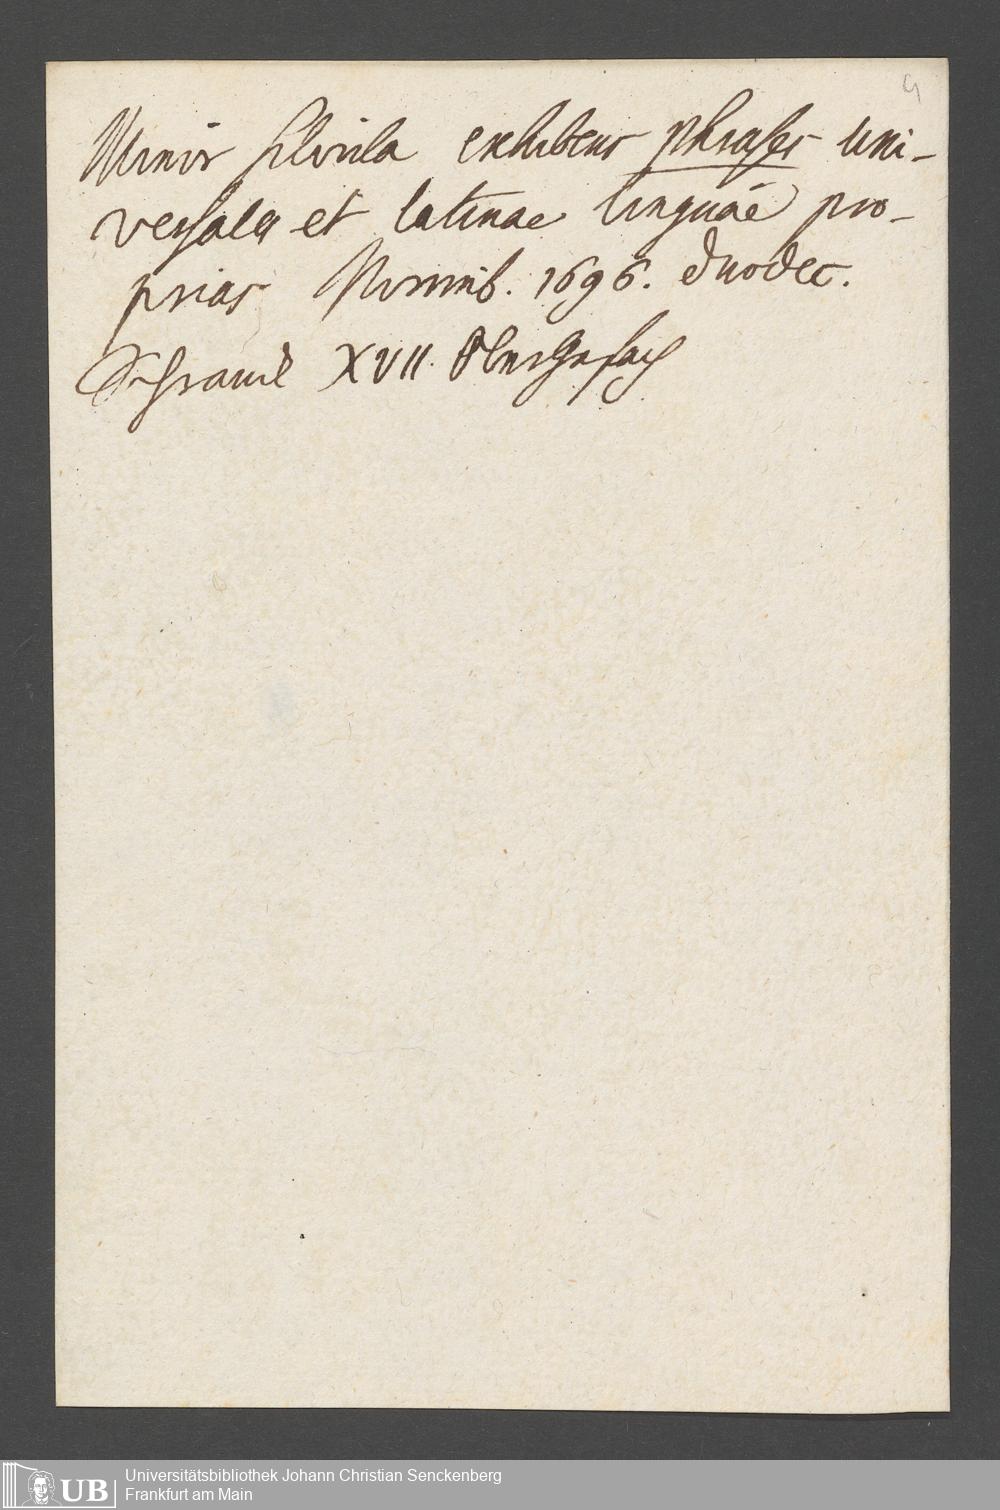 4
Minor sylvula exhibens phrases uni-
versales et latinae linguae pro-
prias Norimb. 1696. duodec.
Schranck XVII. Obergefach
UB
Universitätsbibliothek Johann Christian Senckenberg
Frankfurt am Main